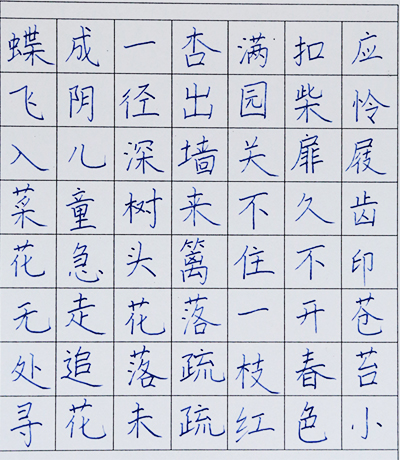 应怜屐齿印苍苔小
扣柴扉久不开春色
满园关不住一枝红
杏出墙来篱落疏疏
一径深树头花落未
成阴儿童急走追花
蝶飞入菜花无处寻